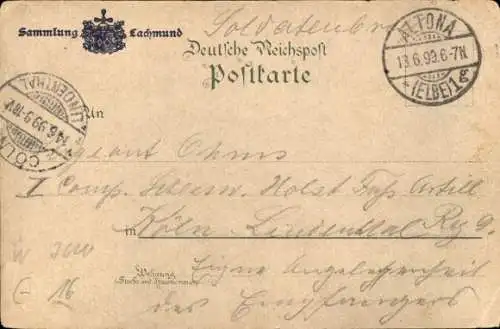 Soldatenbr
Sammlung Lachmund
Deutsche Reichspost
Postkarte
ALTONA
13.6.99.6-7N
* (ELBE) 1g
CÖLN
14.6.99.9-10V
LINDENTHAL
An
Sergeant Ohms
I Comp. Schlesw. Holst Fuß Artill
Rg 9.
in Köln Lindenthal
Wohnung
(Straße und Hausnummer)
Eigne Angelegenheit
des Empfängers
16